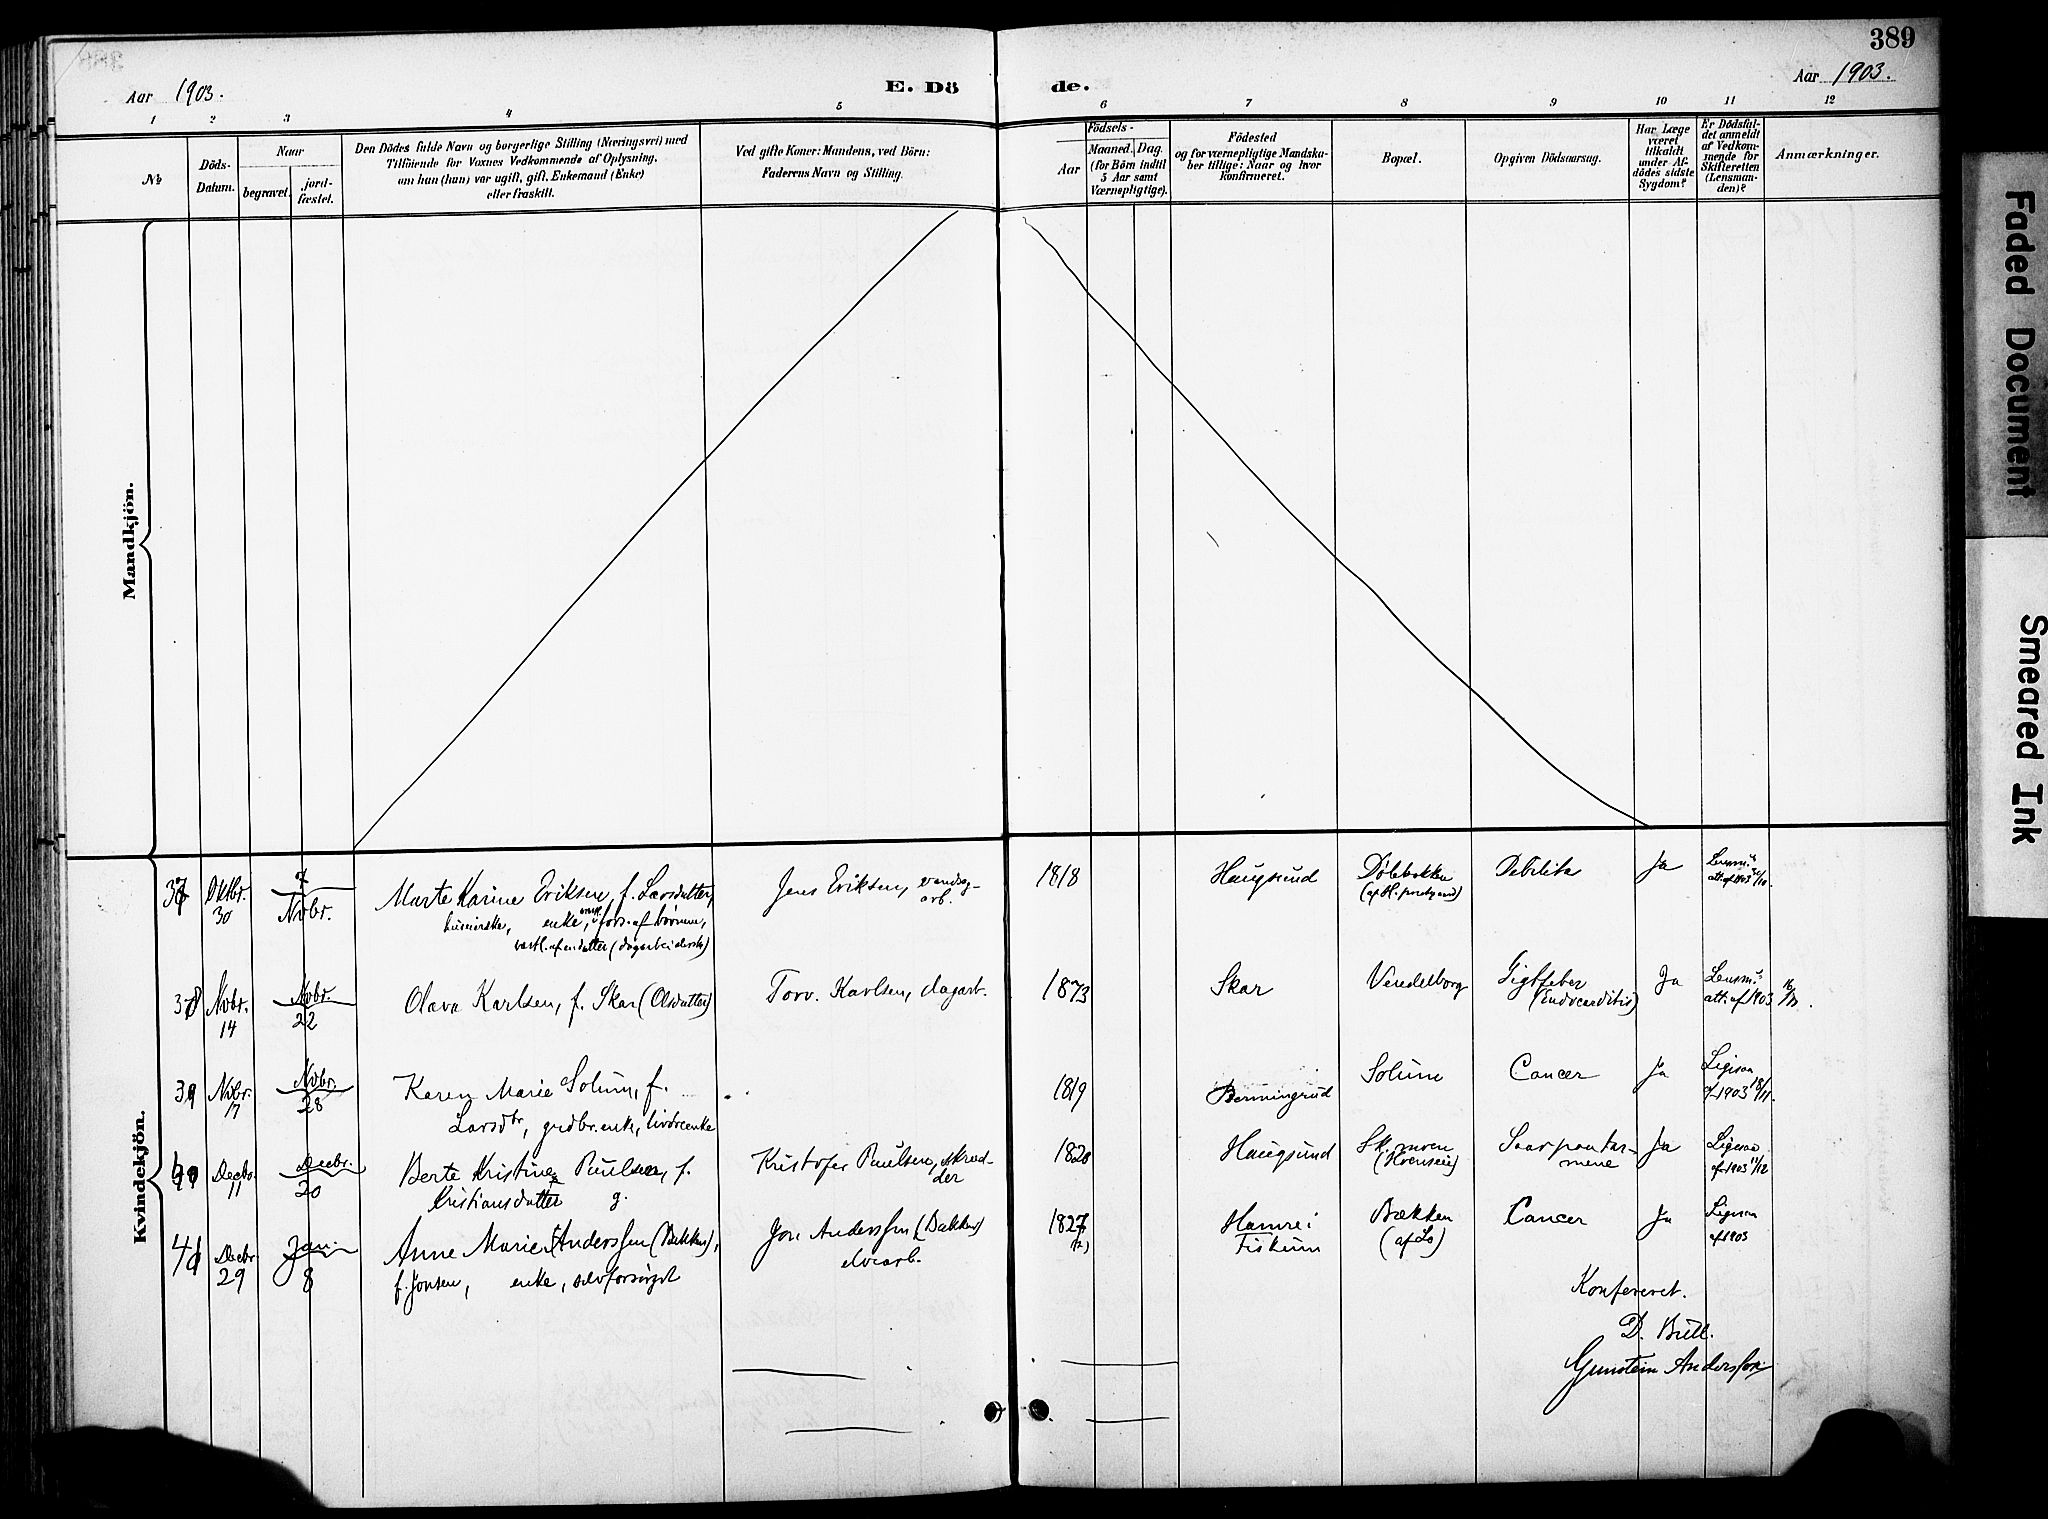 389
Aar 1903.
E. Dö
de.
Aar 1903.
1 2 3 4 5 6 7 8 9 10 11 12
№
Döds-
Datum.
Naar
begravet.
jord-
fæstet.
Den Dödes fulde Navn og borgerlige Stilling (Næringsvei) med
Tilföiende for Voxnes Vedkommende af Oplysning,
om han (hun) var ugift, gift, Enkemand (Enke)
eller fraskilt.
Ved gifte Koner: Mandens, ved Börn:
Faderens Navn og Stilling.
Födsels-
Aar
Maaned. Dag.
(for Börn indtil
5 Aar samt
Værnepligtige).
Födested
og for værnepligtige Mandska-
ber tillige: Naar og hvor
Konfirmeret.
Bopæl.
Opgiven Dödsaarsag.
Har Læge
været
tilkaldt
under Af-
dödes sidste
Sygdom?
Er Dödsfal-
det anmeldt
af Vedkom-
mende for
Skifteretten
(Lensman-
den)?
Anmærkninger.
Mandkjön.
Kvindekjön.
37 Oktbr. 30 7 Novbr. Marte Karine Eriksen, f. Larsdatter,
enke, fors. af børnene,
af en datter (dagarbeiderske)
Jens Eriksen,
arb.
1818 Haugsund Dølebakken Debilitas Ja Lensm.s
att. af 1903
38 Novbr. 14 Novbr. 22 Olava Karlsen, f. Skar (Olsdatter) Torv. Karlsen, dagarb. 1873 Skar Vendelborg Gigtfeber
(Endocarditis) Ja Lensm.s
att. af 1903
39 Novbr. 17 Novbr. 28 Karen Marie Solum, f.
Larsdtr, grdbr.enke, livøreenke
1819 Bermingrud Solum Cancer Ja Ligsa
af 1903 18/11.
40 Decbr. 11 Decbr. 20 Berte Kristine Paulsen, f.
Kristiansdatter g.
Kristofer Paulsen, skræd-
der
1820 Haugsund Ja
af 1903 11/12
41 Decbr. 29 Jan. 8 Anne Marie Anderssen (Bækken),
f. Jonsen, enke, selvforsørget
Jon Anderssen (Bakken)
elvearb.
1827 Hamre i
Fiskum Bækken
(af Lo) Cancer Ja
af 1903
Konfereret.
D. Bull.
Gunstein Anderssen
Faded Document
Smeared Ink